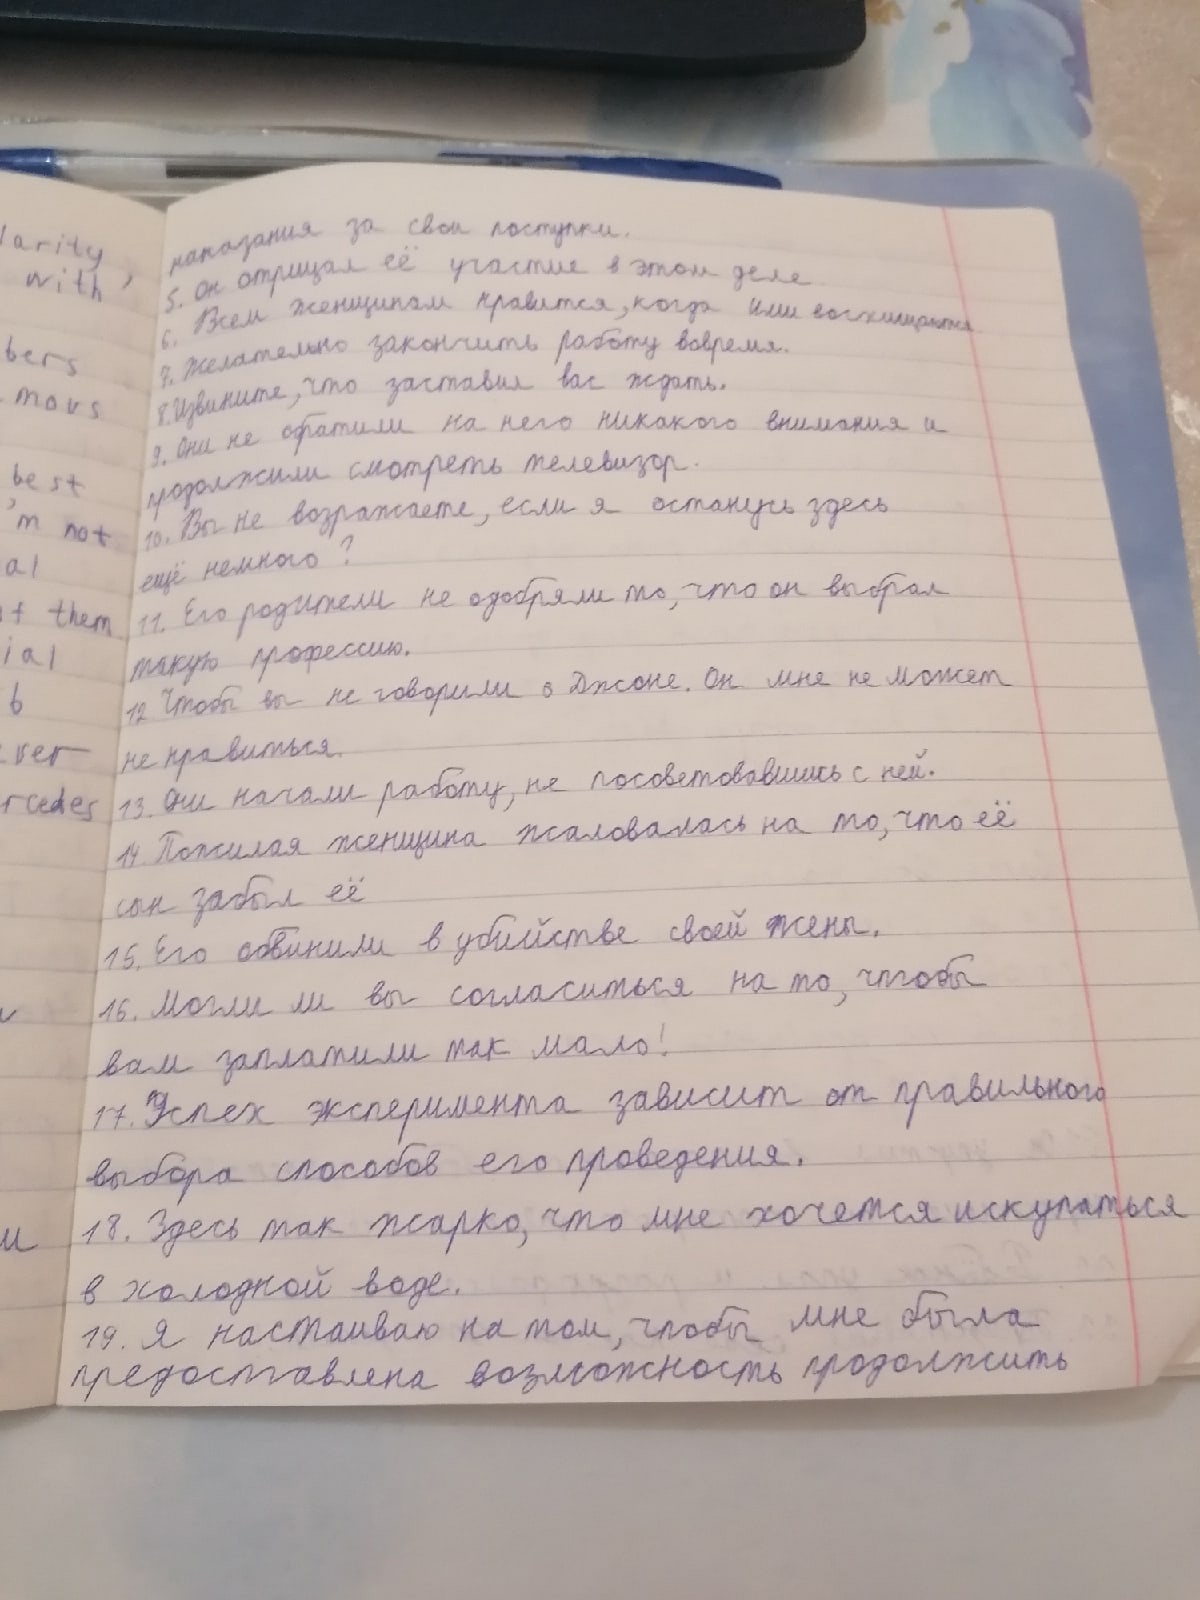 larity,
with
bers
movs
best
'm not
al
them
ial
b
ver
rcedes
и
наказания за свои поступки.
5. Он отрицал её участие в этом деле
6. Всем женщинам нравится, когда ими восхищаются
7. Желательно закончить работу вовремя.
8. Извините, что заставил вас ждать.
9. Они не обратили на него никакого внимания и
продолжили смотреть телевизор.
10. Вы не возражаете, если я останусь здесь
ещё немного?
11. Его родители не одобряли то, что он выбрал
такую профессию.
12 Чтобы вы не говорили о Джоне. Он мне не может
не нравиться.
13. Они начали работу, не посоветовавшись с ней.
14. Пожилая женщина жаловалась на то, что её
сын забыл её
15. Его обвинили в убийстве своей жены.
16. Могли ли вы согласиться на то, чтобы
вам заплатили так мало!
17. Успех эксперимента зависит от правильного
выбора способов его проведения.
18. Здесь так жарко, что мне хочется искупаться
в холодной воде.
19. Я настаиваю на том, чтобы мне была
предоставлена возможность продолжить